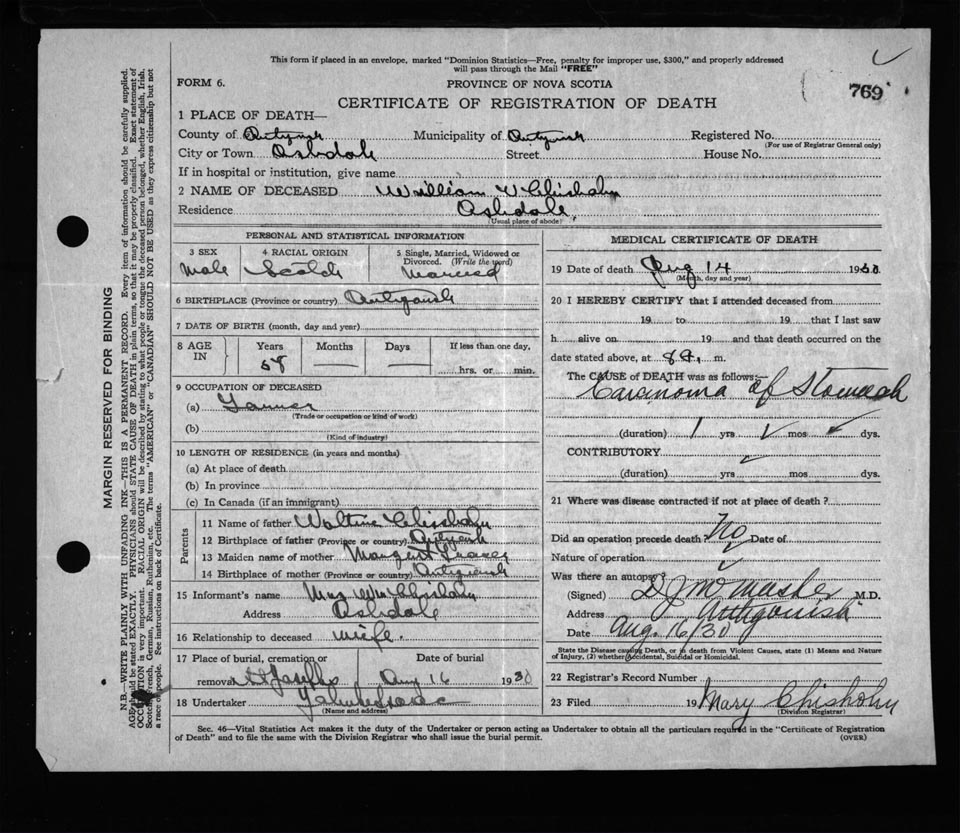 This form if placed in an envelope, marked "Dominion Statistics—Free, penalty for improper use, $300," and properly addressed
will pass through the Mail "FREE"
FORM 6.
PROVINCE OF NOVA SCOTIA
769
CERTIFICATE OF REGISTRATION OF DEATH
1 PLACE OF DEATH—
County of Antigonish Municipality of Antigonish Registered No.
(For use of Registrar General only)
City or Town Ashdale Street House No.
If in hospital or institution, give name
2 NAME OF DECEASED William V Chisholm
Residence Ashdale
(Usual place of abode)
PERSONAL AND STATISTICAL INFORMATION
3 SEX 4 RACIAL ORIGIN 5 Single, Married, Widowed or
Divorced. (Write the word)
Male Scotch Married
6 BIRTHPLACE (Province or country) Antigonish
7 DATE OF BIRTH (month, day and year)
8 AGE IN Years Months Days If less than one day,
hrs. or min.
9 OCCUPATION OF DECEASED
(a) Farmer
(Trade or occupation or kind of work)
(b)
(Kind of industry)
10 LENGTH OF RESIDENCE (in years and months)
(a) At place of death
(b) In province
(c) In Canada (if an immigrant)
Parents
11 Name of father Chisholm
12 Birthplace of father (Province or country) Antigonish
13 Maiden name of mother Margaret
14 Birthplace of mother (Province or country) Antigonish
15 Informant's name Mrs Wm Chisholm
Address Ashdale
16 Relationship to deceased wife.
17 Place of burial, cremation or Date of burial
removal St Josephs Aug 16 1930
18 Undertaker
(Name and address)
MEDICAL CERTIFICATE OF DEATH
19 Date of death Aug 14 1930
(Month, day and year)
20 I HEREBY CERTIFY that I attended deceased from
19 to 19 that I last saw
h alive on 19 and that death occurred on the
date stated above, at 8 a. m.
The CAUSE of DEATH was as follows:—
Carcinoma of Stomach
(duration) 1 yrs mos dys.
CONTRIBUTORY
(duration) yrs mos dys.
21 Where was disease contracted if not at place of death?
Did an operation precede death No Date of
Nature of operation
Was there an autopsy?
(Signed) M.D.
Address Antigonish
Date Aug. 16/30
State the Disease causing Death, or, in death from Violent Causes, state (1) Means and Nature
of Injury, (2) whether Accidental, Suicidal or Homicidal.
22 Registrar's Record Number
23 Filed 19 Mary Chisholm
(Division Registrar)
Sec. 46—Vital Statistics Act makes it the duty of the Undertaker or person acting as Undertaker to obtain all the particulars required in the "Certificate of Registration
of Death" and to file the same with the Division Registrar who shall issue the burial permit.
(OVER)
MARGIN RESERVED FOR BINDING
N.B.—WRITE PLAINLY WITH UNFADING INK—THIS IS A PERMANENT RECORD. Every item of information should be carefully supplied.
AGE should be stated EXACTLY. PHYSICIANS should STATE CAUSE OF DEATH in plain terms, so that it may be properly classified. Exact statement of
OCCUPATION is very important. RACIAL ORIGIN will be described by stating to what people or tongue the deceased person belonged, whether English, Irish,
Scotch, French, German, Russian, Ruthenian, etc. The terms "AMERICAN" or "CANADIAN" SHOULD NOT BE USED as they express citizenship but not
a race or people. See instructions on back of Certificate.